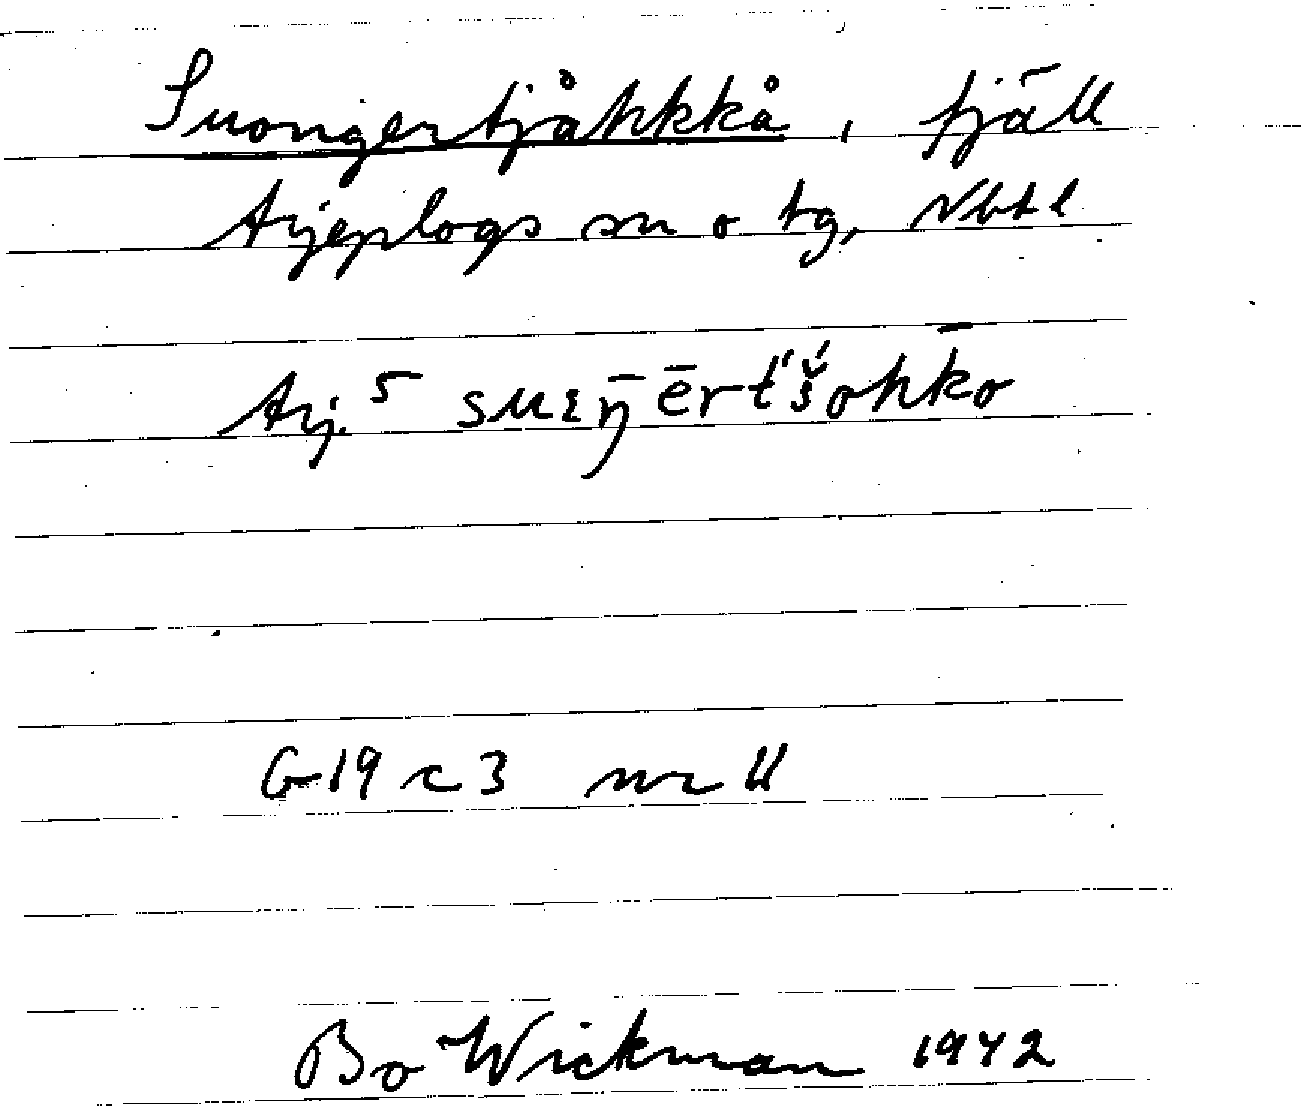 Suongertjåhkkå, fjäll
Arjeplogs sn o tg, Vbt l
Arj. 5 suᴇŋ̄ērt́š́ohk̄o
G 19 c 3 nr 11
Bo Wickman 1942